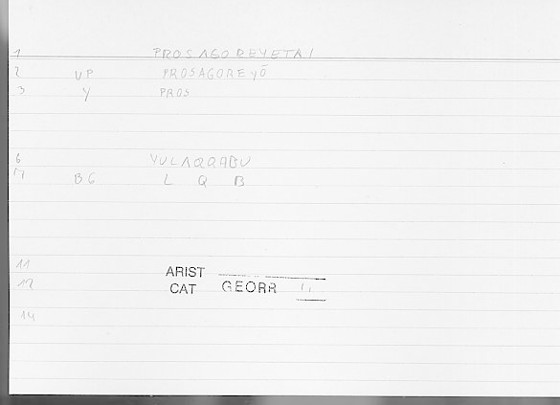 1 PROSAGOREYETAI
2 VP PROSAGOREYŌ
3 Y PROS
6 YULAQQABU
BG L Q B
11 ARIST
12 CAT GEORR
14